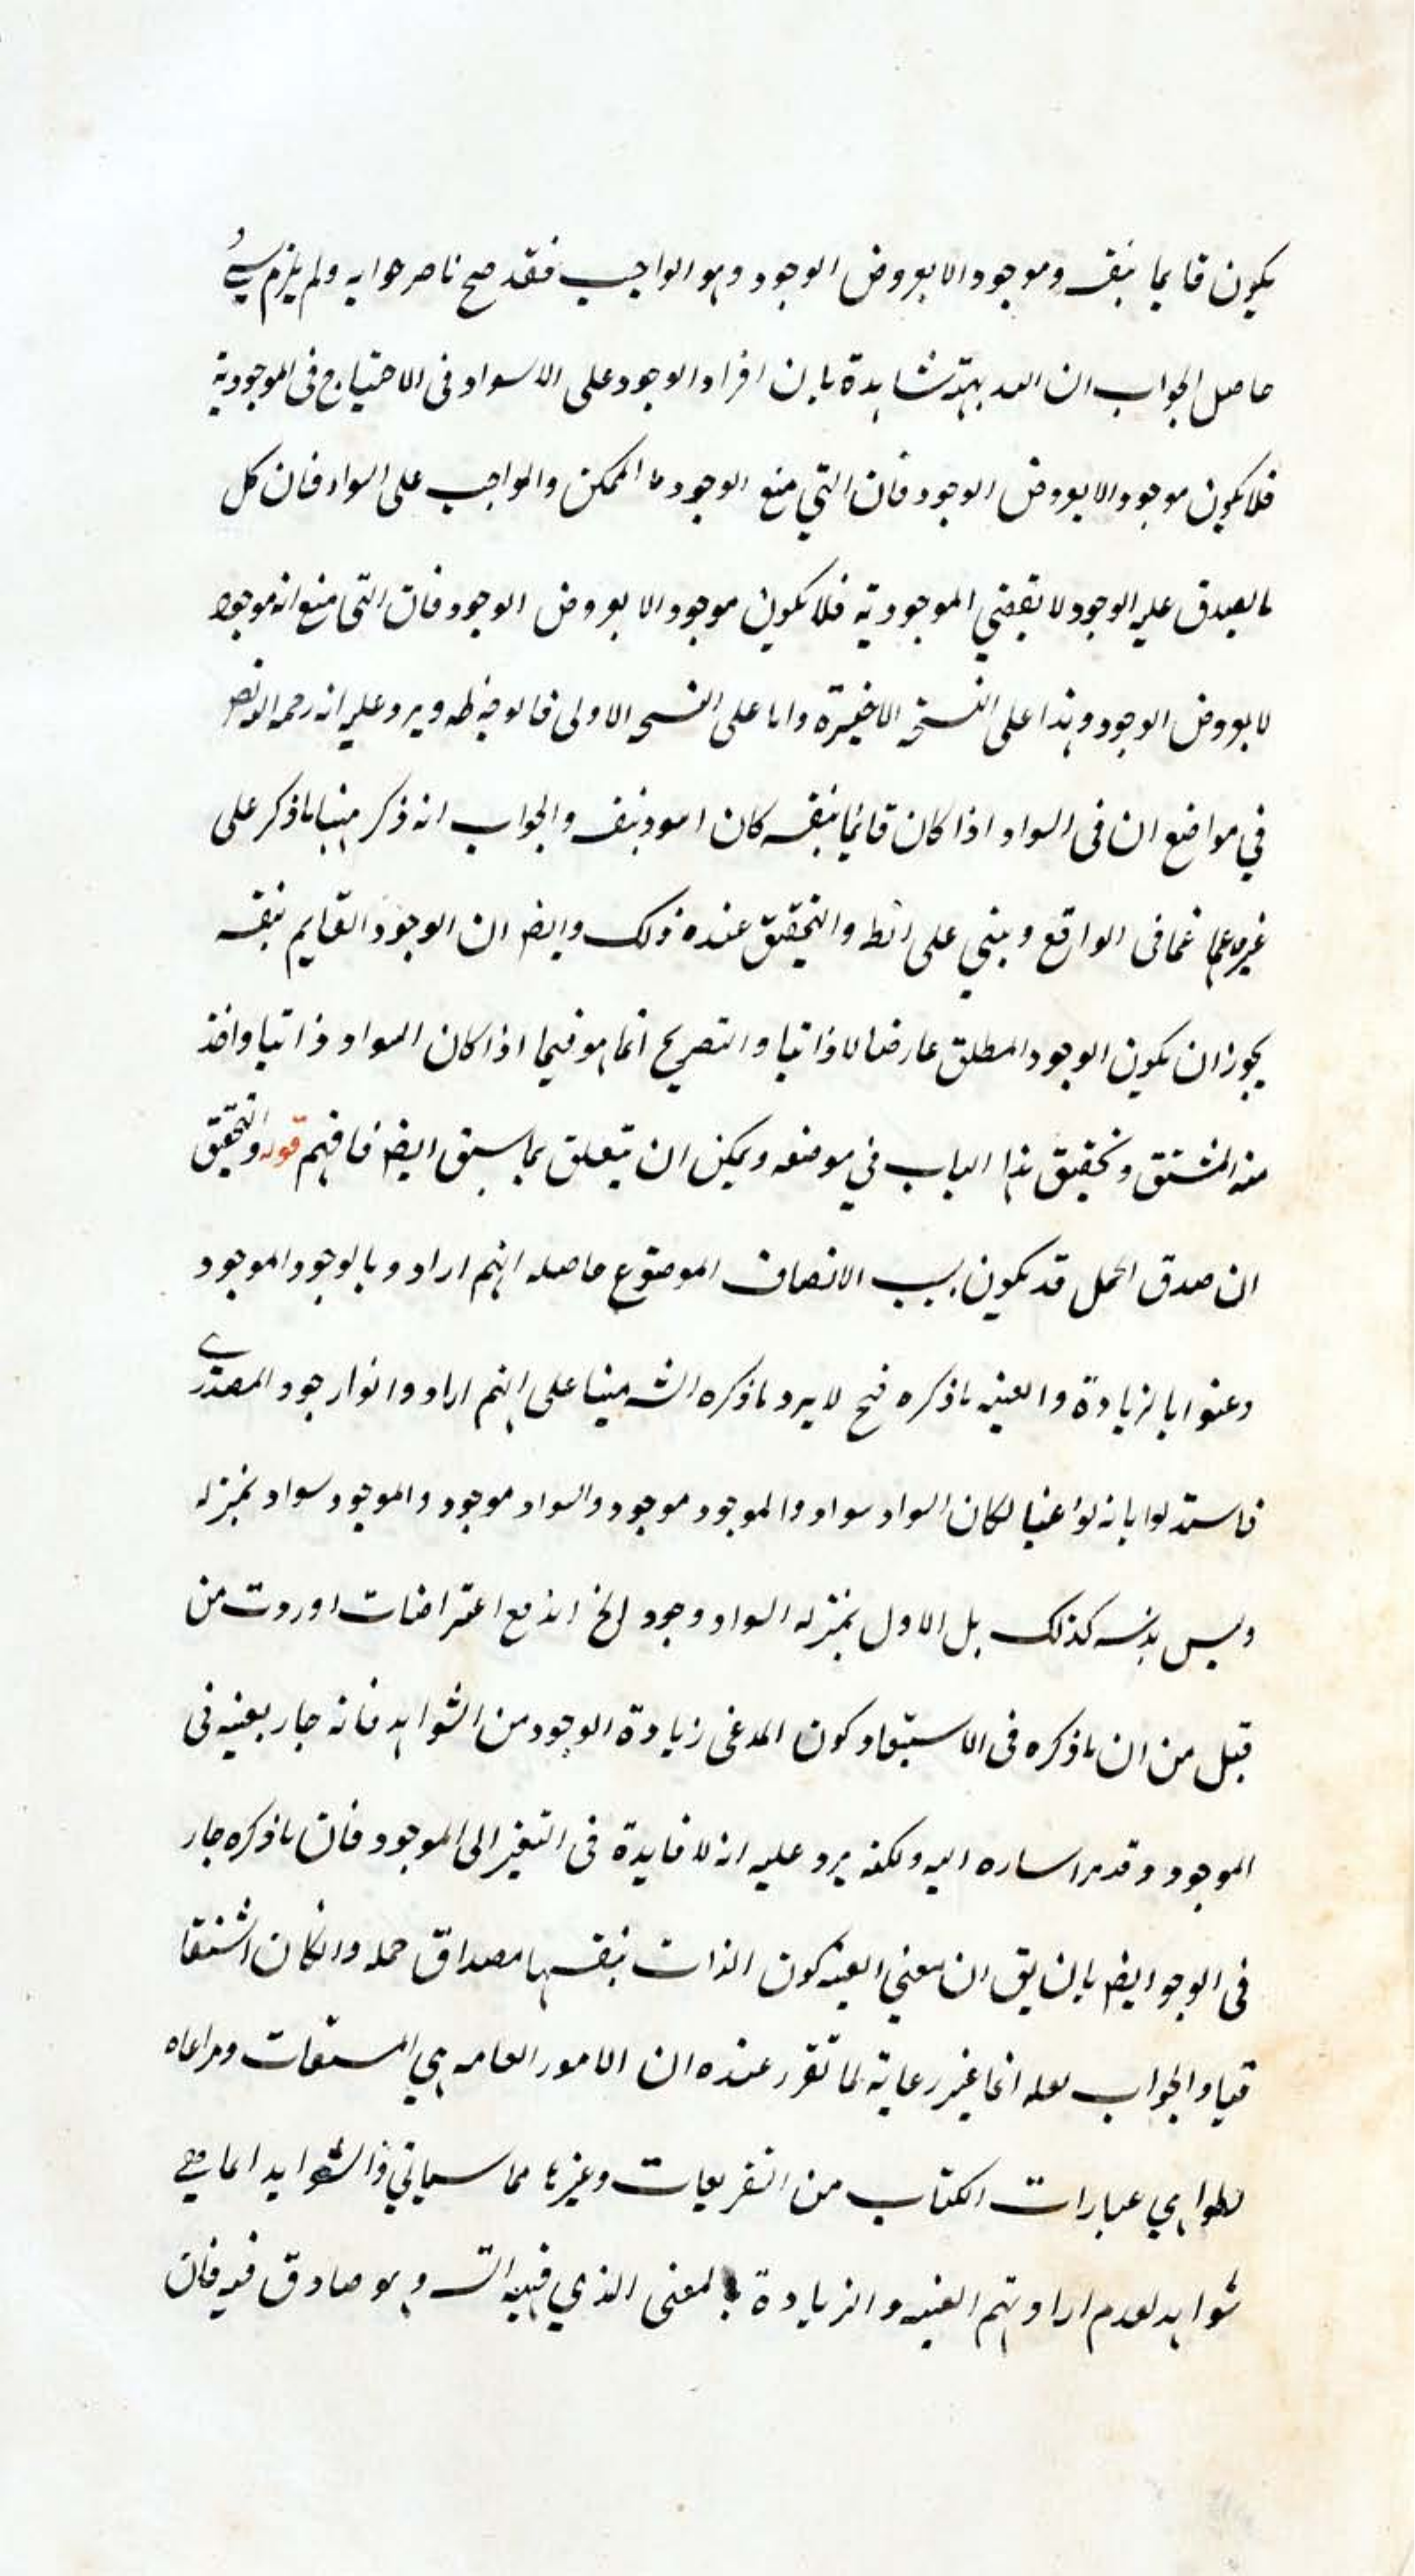 يكون قايما بنفسه وموجودا لا بعروض الوجود وهو الواجب فقد صح ناصر جوابه ولم يلزم شيء
حاصل الجواب ان البديهة شاهدة بان افراد الوجود على الاسواد فى الاحتياج فى الموجودية
فلا يكون موجودا لا بعروض الوجود فان التي منع الوجود ما الممكن والواجب على السواد فان كل
ما يصدق عليه الوجود لا يقتضي الموجودية فلا يكون موجودا لا بعروض الوجود فان التى منع انه موجود
لا بعروض الوجود وهذا على النسخة الاخيرة واما على النسخه الاولى فالوجه ظه ويرد عليه انه رحمه الله نص
في مواضع ان فى السواد اذا كان قائما بنفسه كان اسود بنفسه والجواب انه ذكر هيهنا ما ذكر على
غيره عما فى الواقع وبني على الظ والتحقيق عنده ذلك وايضا ان الوجود القايم بنفسه
يجوز ان يكون الوجود المطلق عارضا لا ذاتيا والتصريح انما هو فيما اذا كان السواد ذاتيا واخذ
منه المشتق وتحقيق هذا الباب في موضعه ويمكن ان يتعلق بما سبق ايضا فافهم قوله والتحقيق
ان صدق الحمل قد يكون بسبب الاتصاف الموضوع حاصله انهم ارادوا بالوجود الموجود
وعنوا بالزيادة والعينيه ما ذكره فح لا يرد ما ذكره الش هيهنا على انهم ارادوا الوجود المصدري
فاستدلوا بانه لو اعينا لكان السواد سواد والموجود موجود والسواد موجود والموجود سواد بمنزله
وليس بذلك كذلك بل الاول بمنزله السواد وجود الخ اندفع اعتراضات اوردت من
قبل من ان ما ذكره فى الاستبعاد كون المدعى زيادة الوجود من الشواهد فانه جار بعينه فى
الموجود وقد مر اساره اليه ولكنه يرد عليه انه لا فايدة فى التغير الى الموجود فان ما ذكره جار
فى الوجود ايضا بان يق ان معني العينيه كون الذات بنفسها مصداق حمله وان كان اشتقا
قيا والجواب لعله انما غير رعاية لما تقرر عنده ان الامور العامه هي المشتقات ومراعاه
لظواهر عبارات الكتاب من التفريعات وغيرها مما سياتي والشواهد الماضي
شواهد لعدم ارادتهم العينيه والزيادة بالمعنى الذي فهمه الش وهو صادق فيه فان